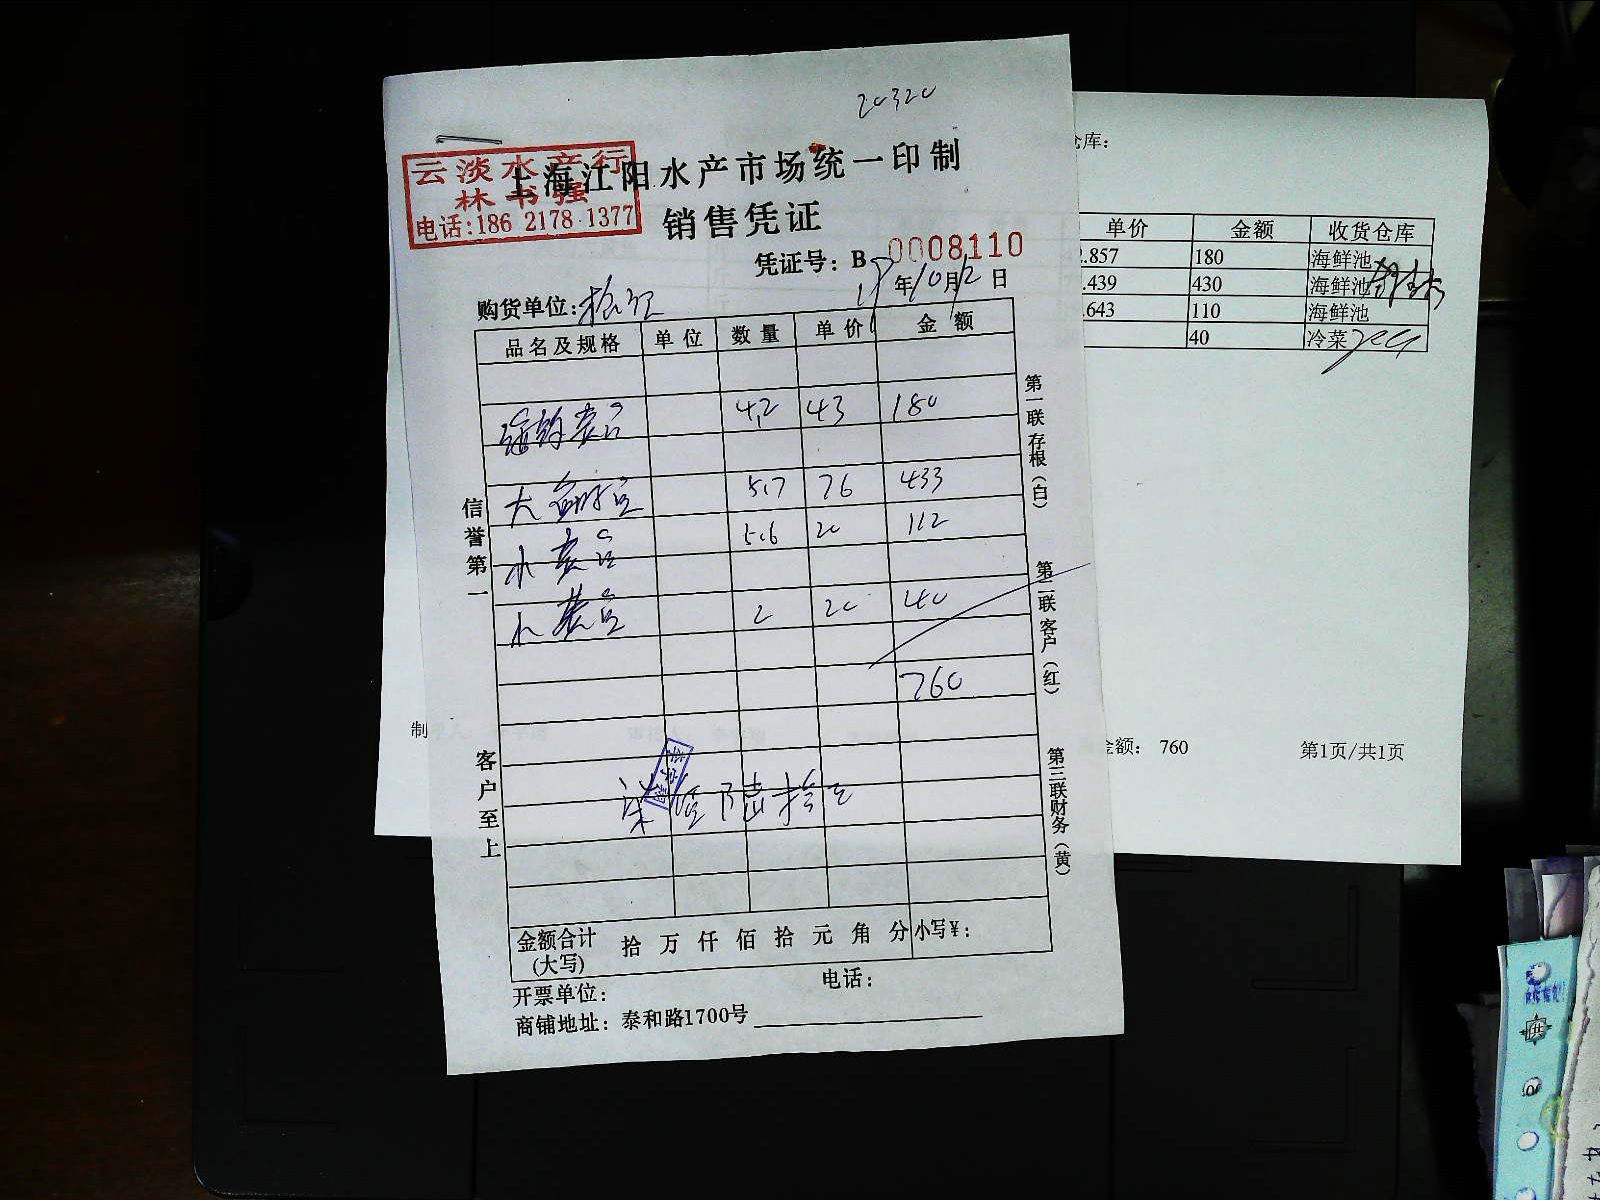 20320
云淡水产行
林书强
电话:186 2178 1377
上海江阳水产市场统一印制
销售凭证
凭证号：B 0008110
18年10月2日
购货单位:
品名及规格 单位 数量 单价 金额
4.2 43 180
大 5.7 76 433
小 5.6 20 112
小 2 20 40
760
柒佰陆拾元
金额合计(大写) 拾 万 仟 佰 拾 元 角 分 小写¥：
开票单位： 电话：
商铺地址：泰和路1700号
信誉第一
客户至上
第一联存根(白)
第二联客户(红)
第三联财务(黄)
仓库：
单价 金额 收货仓库
.857 180 海鲜池
.439 430 海鲜池
.643 110 海鲜池
40 冷菜
制
金额： 760
第1页/共1页